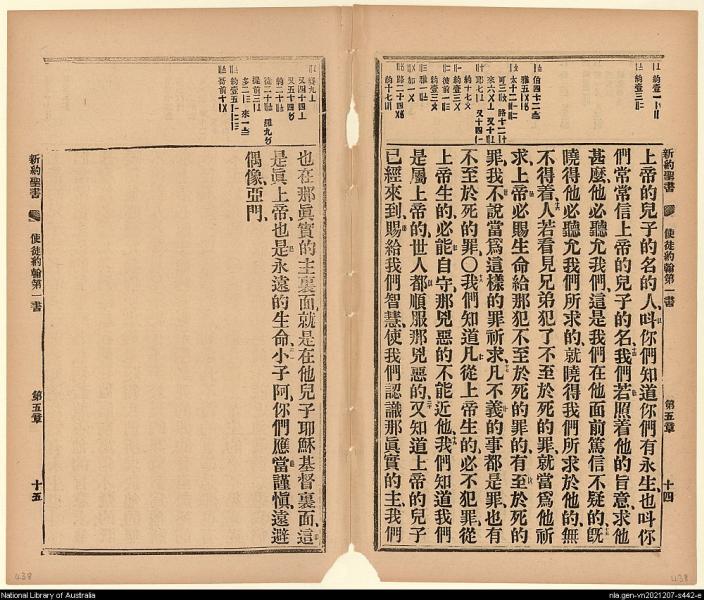 新約聖書
使徒約翰第一書
第五章
十四
上帝的兒子的名的人呌你們知道你們有永生也呌你
們常常信上帝的兒子的名我們若照着他的旨意求他
甚麽他必聽允我們這是我們在他面前篤信不疑的旣
曉得他必聽允我們所求的就曉得我們所求於他的無
不得着人若看見兄弟犯了不至於死的罪就當爲他祈
求上帝必賜生命給那犯不至於死的罪的有至於死的
罪我不說當爲這樣的罪祈求凡不義的事都是罪也有
不至於死的罪〇我們知道凡從上帝生的必不犯罪從
上帝生的必能自守那兇惡的不能近他我們知道我們
是屬上帝的世人都順服那兇惡的又知道上帝的兒子
已經來到賜給我們智慧使我們認識那眞實的主我們
也在那眞實的主裏面就是在他兒子耶穌基督裏面這
是眞上帝也是永遠的生命小子阿你們應當謹愼遠避
偶像亞門
新約聖書
使徒約翰第一書
第五章
十五
438
438
National Library of Australia
nla.gen-vn2021207-s442-e